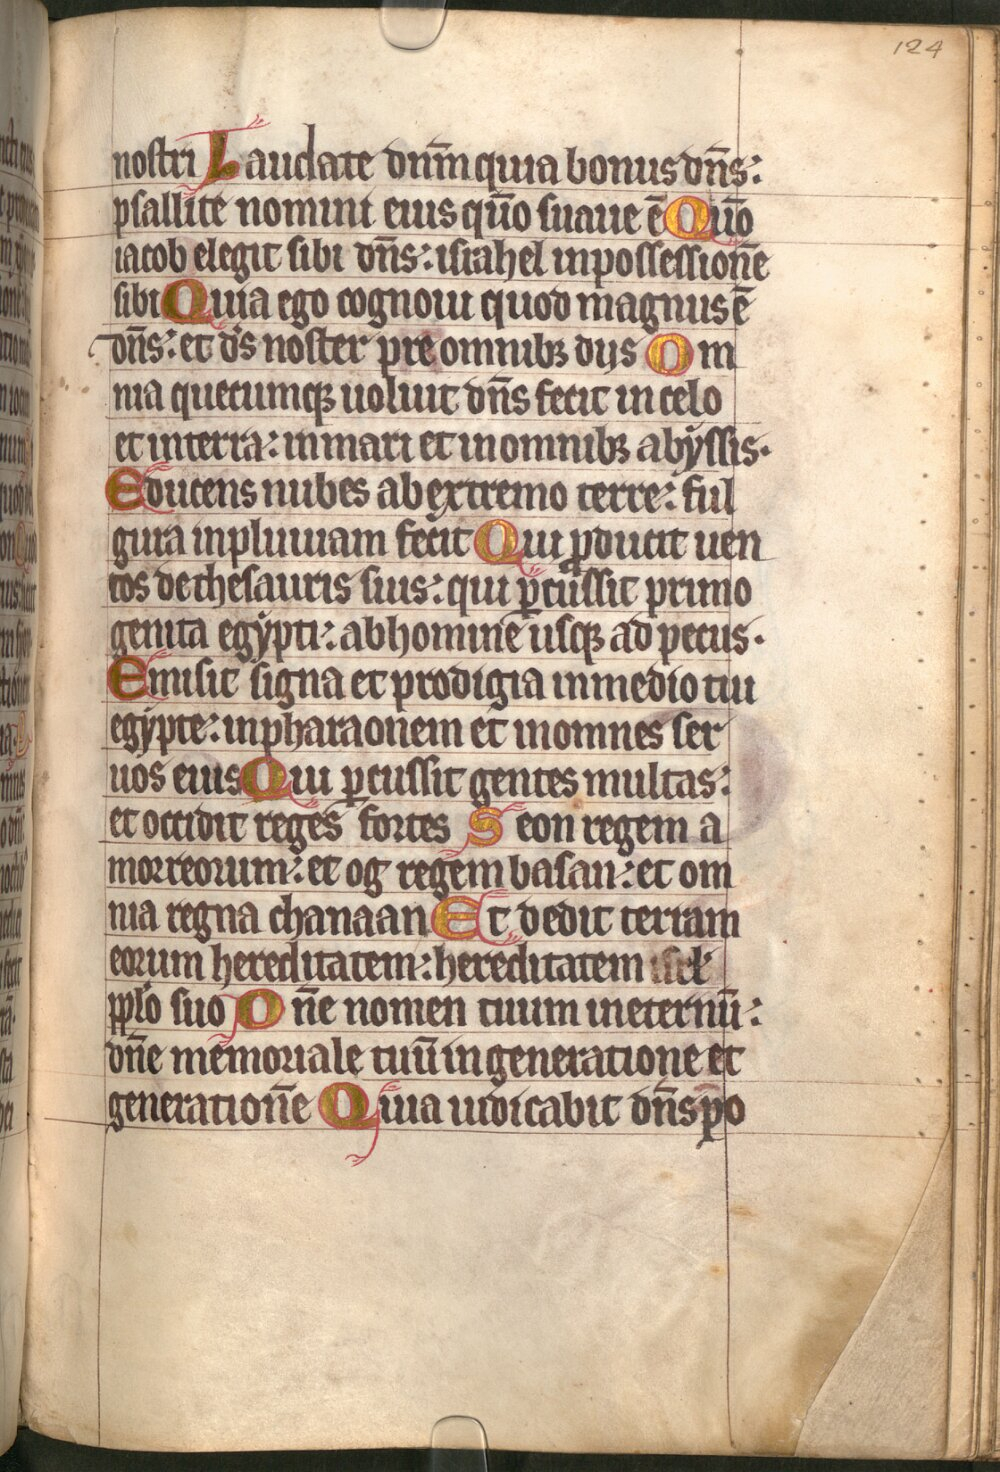 124
nostri Laudate dnm̄ quia bonus dn̄s:
psallite nomini eius qūo suaue ē Qūo
iacob elegit sibi dn̄s: israhel inpossessionē
sibi Quia ego cognoui quod magnus ē
dn̄s: et ds̄ noster pre omnibꝫ dijs Om
nia quecumqꝫ uoluit dn̄s fecit in celo
et interra: inmari et inomnibꝫ abẏssis.
Educens nubes abextremo terre: ful
gura inpluuiam fecit Qui ꝓducit uen
tos dethesauris suis: qui ꝑcussit primo
genita egẏpti: abhomine usqꝫ ad pecus.
Emisit signa et prodigia inmedio tui
egẏpte: inpharaonem et inomnes ser
uos eius Qui ꝑcussit gentes multas:
et occidit reges fortes Seon regem a
morreorum: et og regem basan: et om
nia regna chanaan Et dedit terram
eorum hereditatem: hereditatem isrl
pplo suo Dn̄e nomen tuum ineternū:
dn̄e memoriale tuū in generatione et
generationē Quia iudicabit dn̄s po